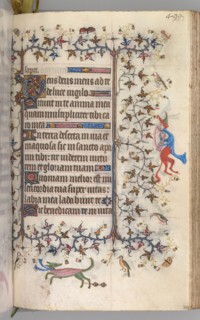 Deus deus meus ad te
de luce vigilo.
Sitivit in te anima mea
quam multipliciter tibi ca
ro mea
In terra deserta invia et
inaquosa sic in sancto appa
rui tibi ut viderem virtu
tem et gloriam tuam
Quoniam melior est mi
sericordia tua super vitas
labia mea laudabunt te
Sic benedicam te in vita